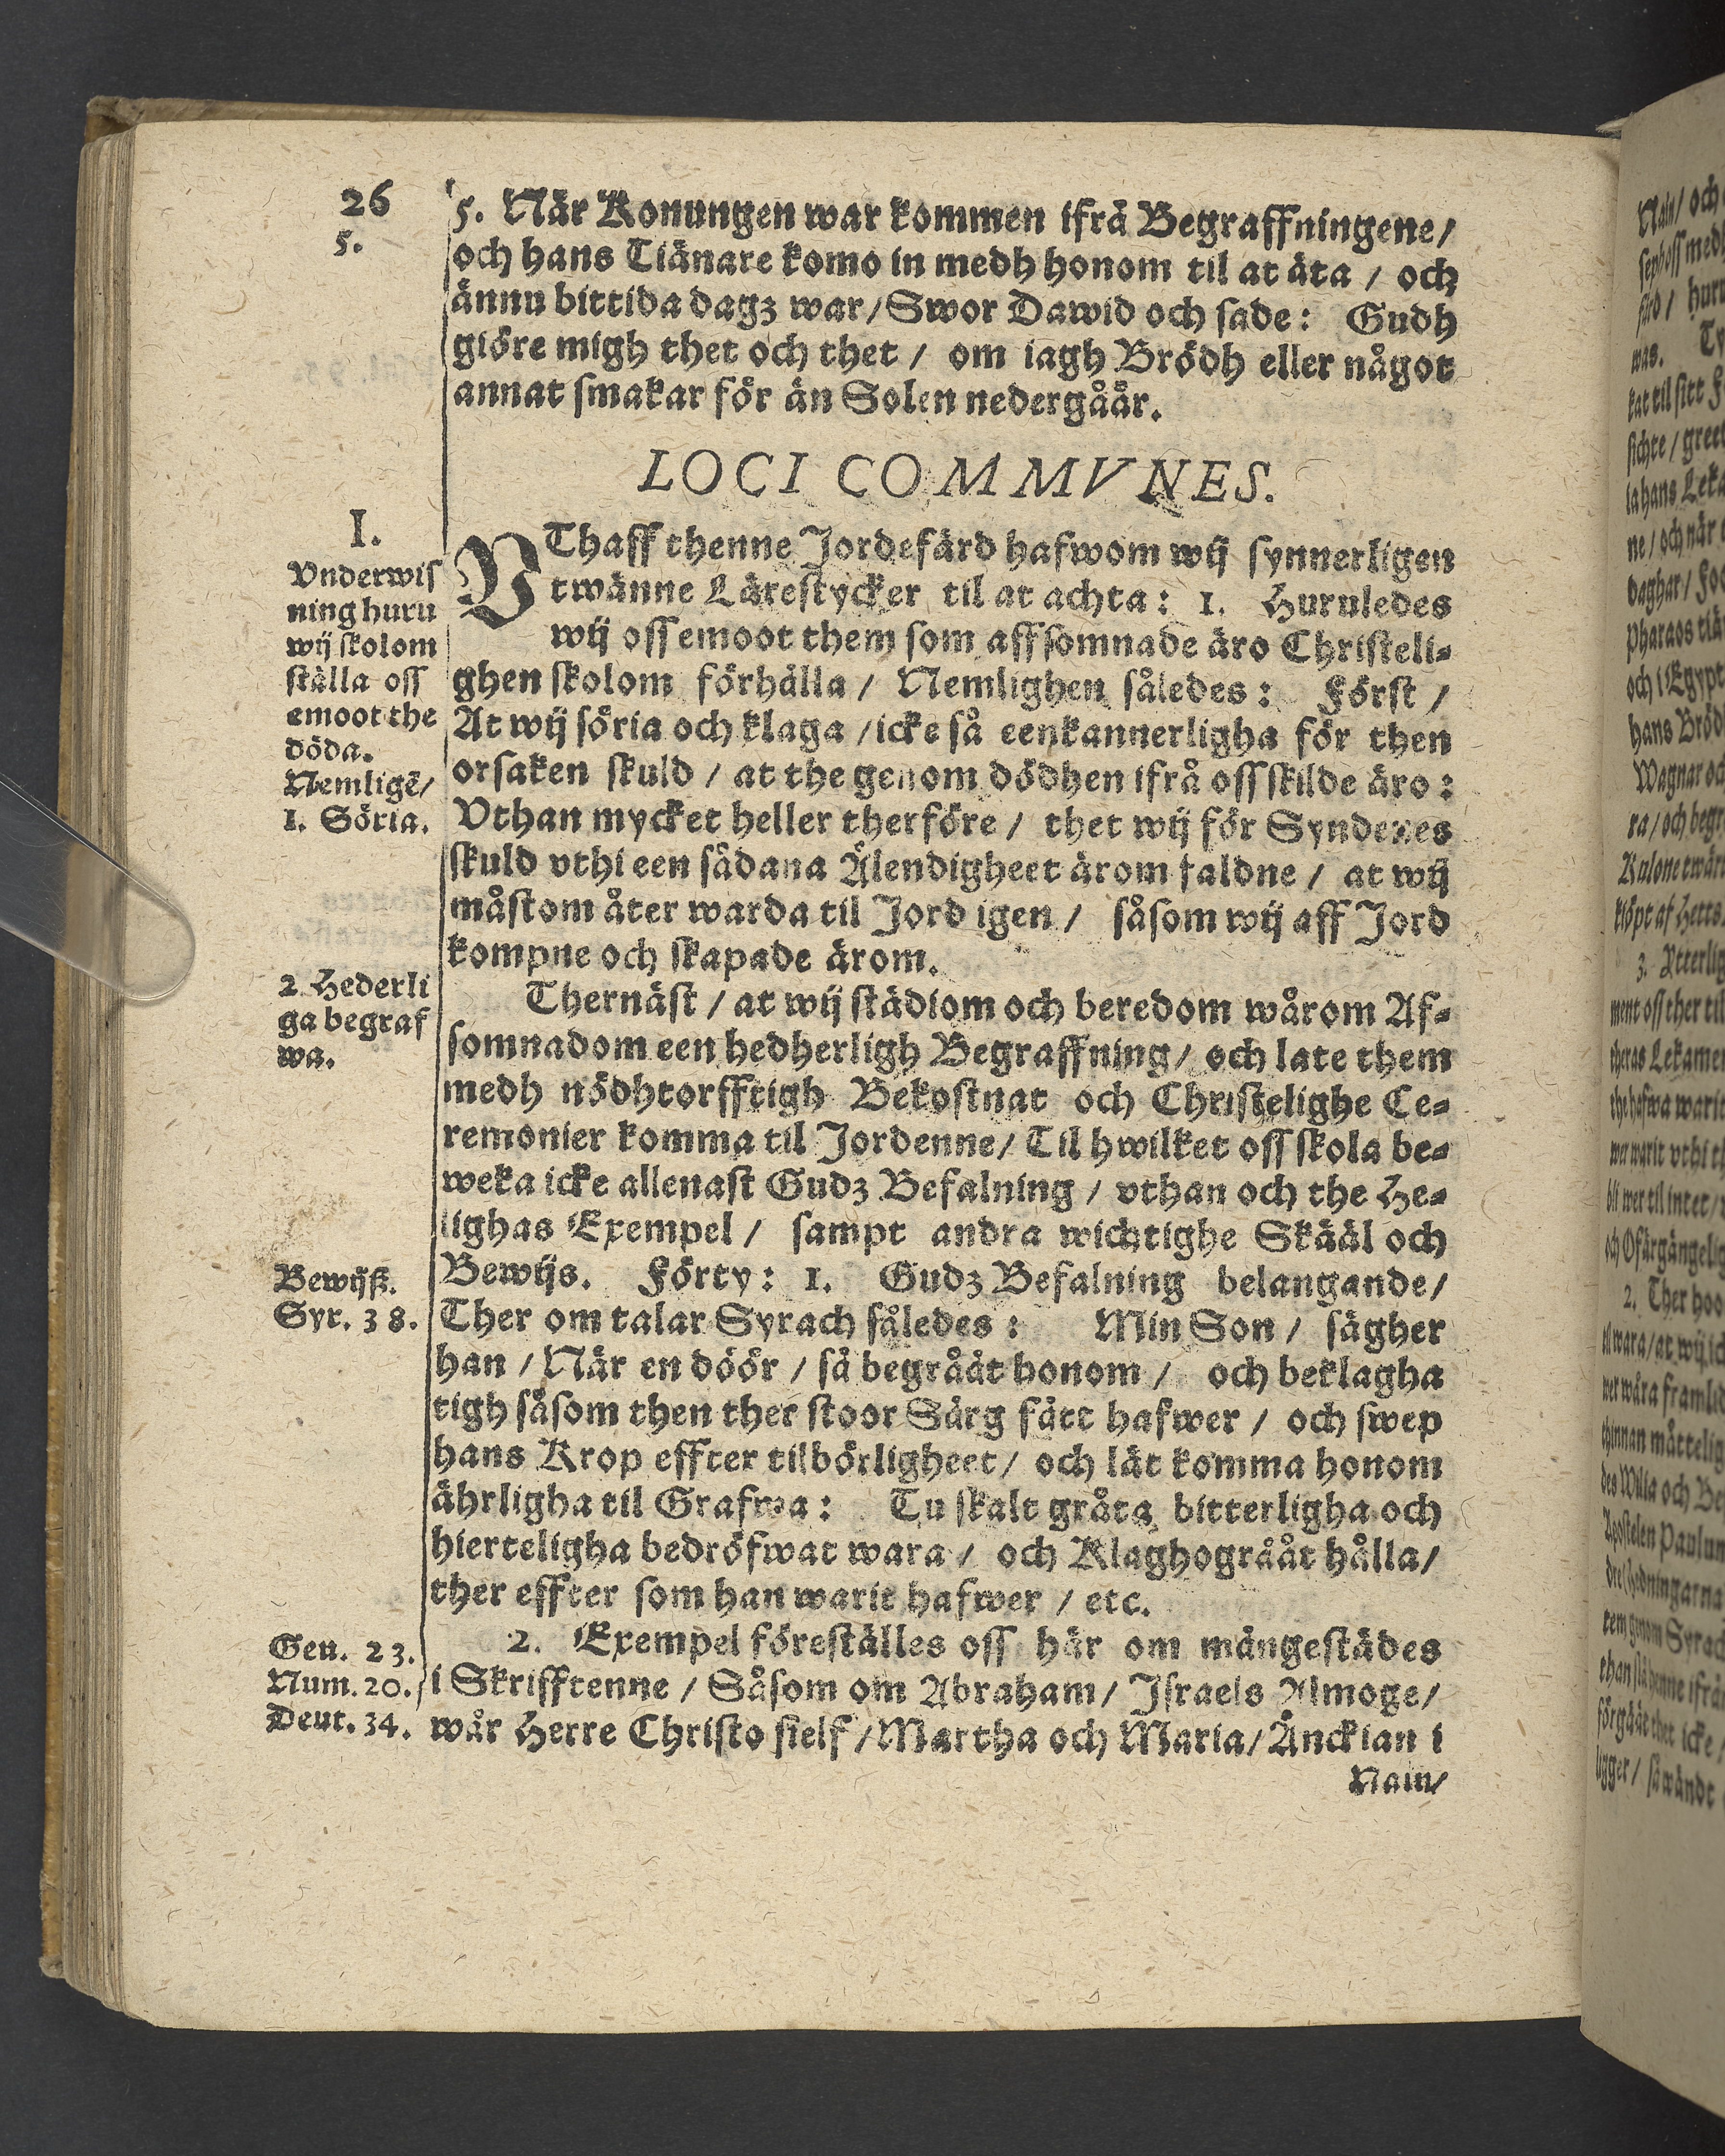 26
5.
5. När Konungen war kommen ifrå Begraffningene/
och hans Tiänare komo in medh honom til at äta / och
ännu bittida dagz war/Swor Dawid och sade: Gudh
giöre migh thet och thet / om iagh Brödh eller något
annat smakar för än Solen nedergåår.
LOCI COMMVNES.
I.
Vnderwis
ning huru
wij skolom
ställa oss
emoot the
döda.
Nemligē/
1. Söria.
VThaff thenne Jordefärd hafwom wij synnerligen
twänne Lärestycker til at achta: 1. Huruledes
wij oss emoot them som affsomnade äro Christeli-
ghen skolom förhålla / Nemlighen således: Först /
At wij söria och klaga /icke så eenkannerligha för then
orsaken skuld / at the genom dödhen ifrå oss skilde äro:
Vthan mycket heller therföre / thet wij för Syndenes
skuld vthi een sådana Älendigheet ärom faldne / at wij
måstom åter warda til Jord igen / såsom wij aff Jord
kompne och skapade ärom.
2 Hederli
ga begraf
wa.
Thernäst / at wij städiom och beredom wårom Af-
somnadom een hedherligh Begraffning/ och late them
medh nödhtorfftigh Bekostnat och Christelighe Ce-
remonier komma til Jordenne/ Til hwilket oss skola be-
weka icke allenast Gudz Befalning / vthan och the He-
lighas Exempel / sampt andra wichtighe Skääl och
Bewijs. Förty: 1. Gudz Befalning belangande/
Bewijß.
Syr. 38.
Ther om talar Syrach således: Min Son / sägher
han / När en döör / så begrååt honom / och beklagha
tigh såsom then ther stoor Sårg fått hafwer / och swep
hans Krop effter tilbörligheet/ och låt komma honom
ährligha til Grafwa: Tu skalt gråta bitterligha och
hierteligha bedröfwat wara / och Klaghogrååt hålla/
ther effter som han warit hafwer / etc.
2. Exempel föreställes oss här om mångestädes
Gen. 23.
Num. 20.
Deut. 34.
i Skrifftenne / Såsom om Abraham/ Israels Almoge/
wår Herre Christo sielf /Martha och Maria/ Änckian i
Nain/